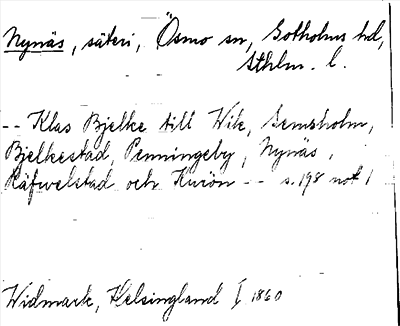 Nynäs, säteri, Ösmo sn, Sotholms hd,
Sthlm. l.
-- Klas Bjelke till Wik, Semsholm,
Bjelkestad, Penningeby, Nynäs,
Räfwelstad och Kurön -- s. 198 not 1
Widmark, Helsingland I 1860